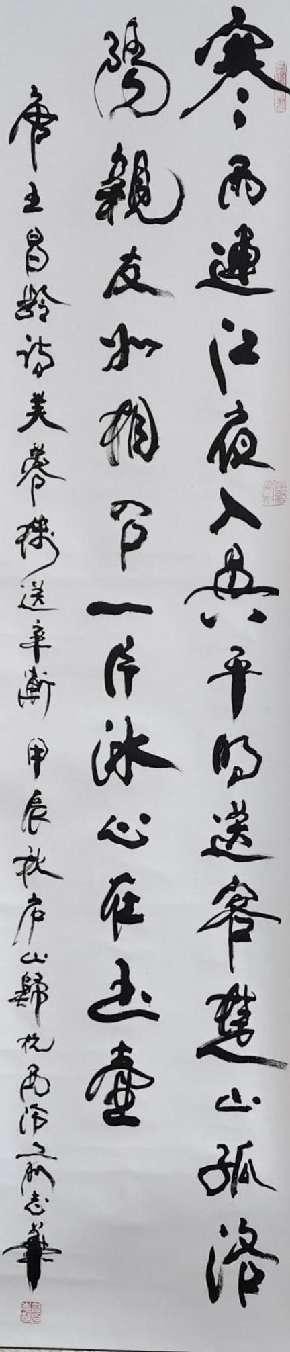 寒雨連江夜入吳平明送客楚山孤洛
陽親友如相問一片冰心在玉壺
唐王昌齡詩芙蓉樓送辛漸 甲辰秋 山歸杭 志華